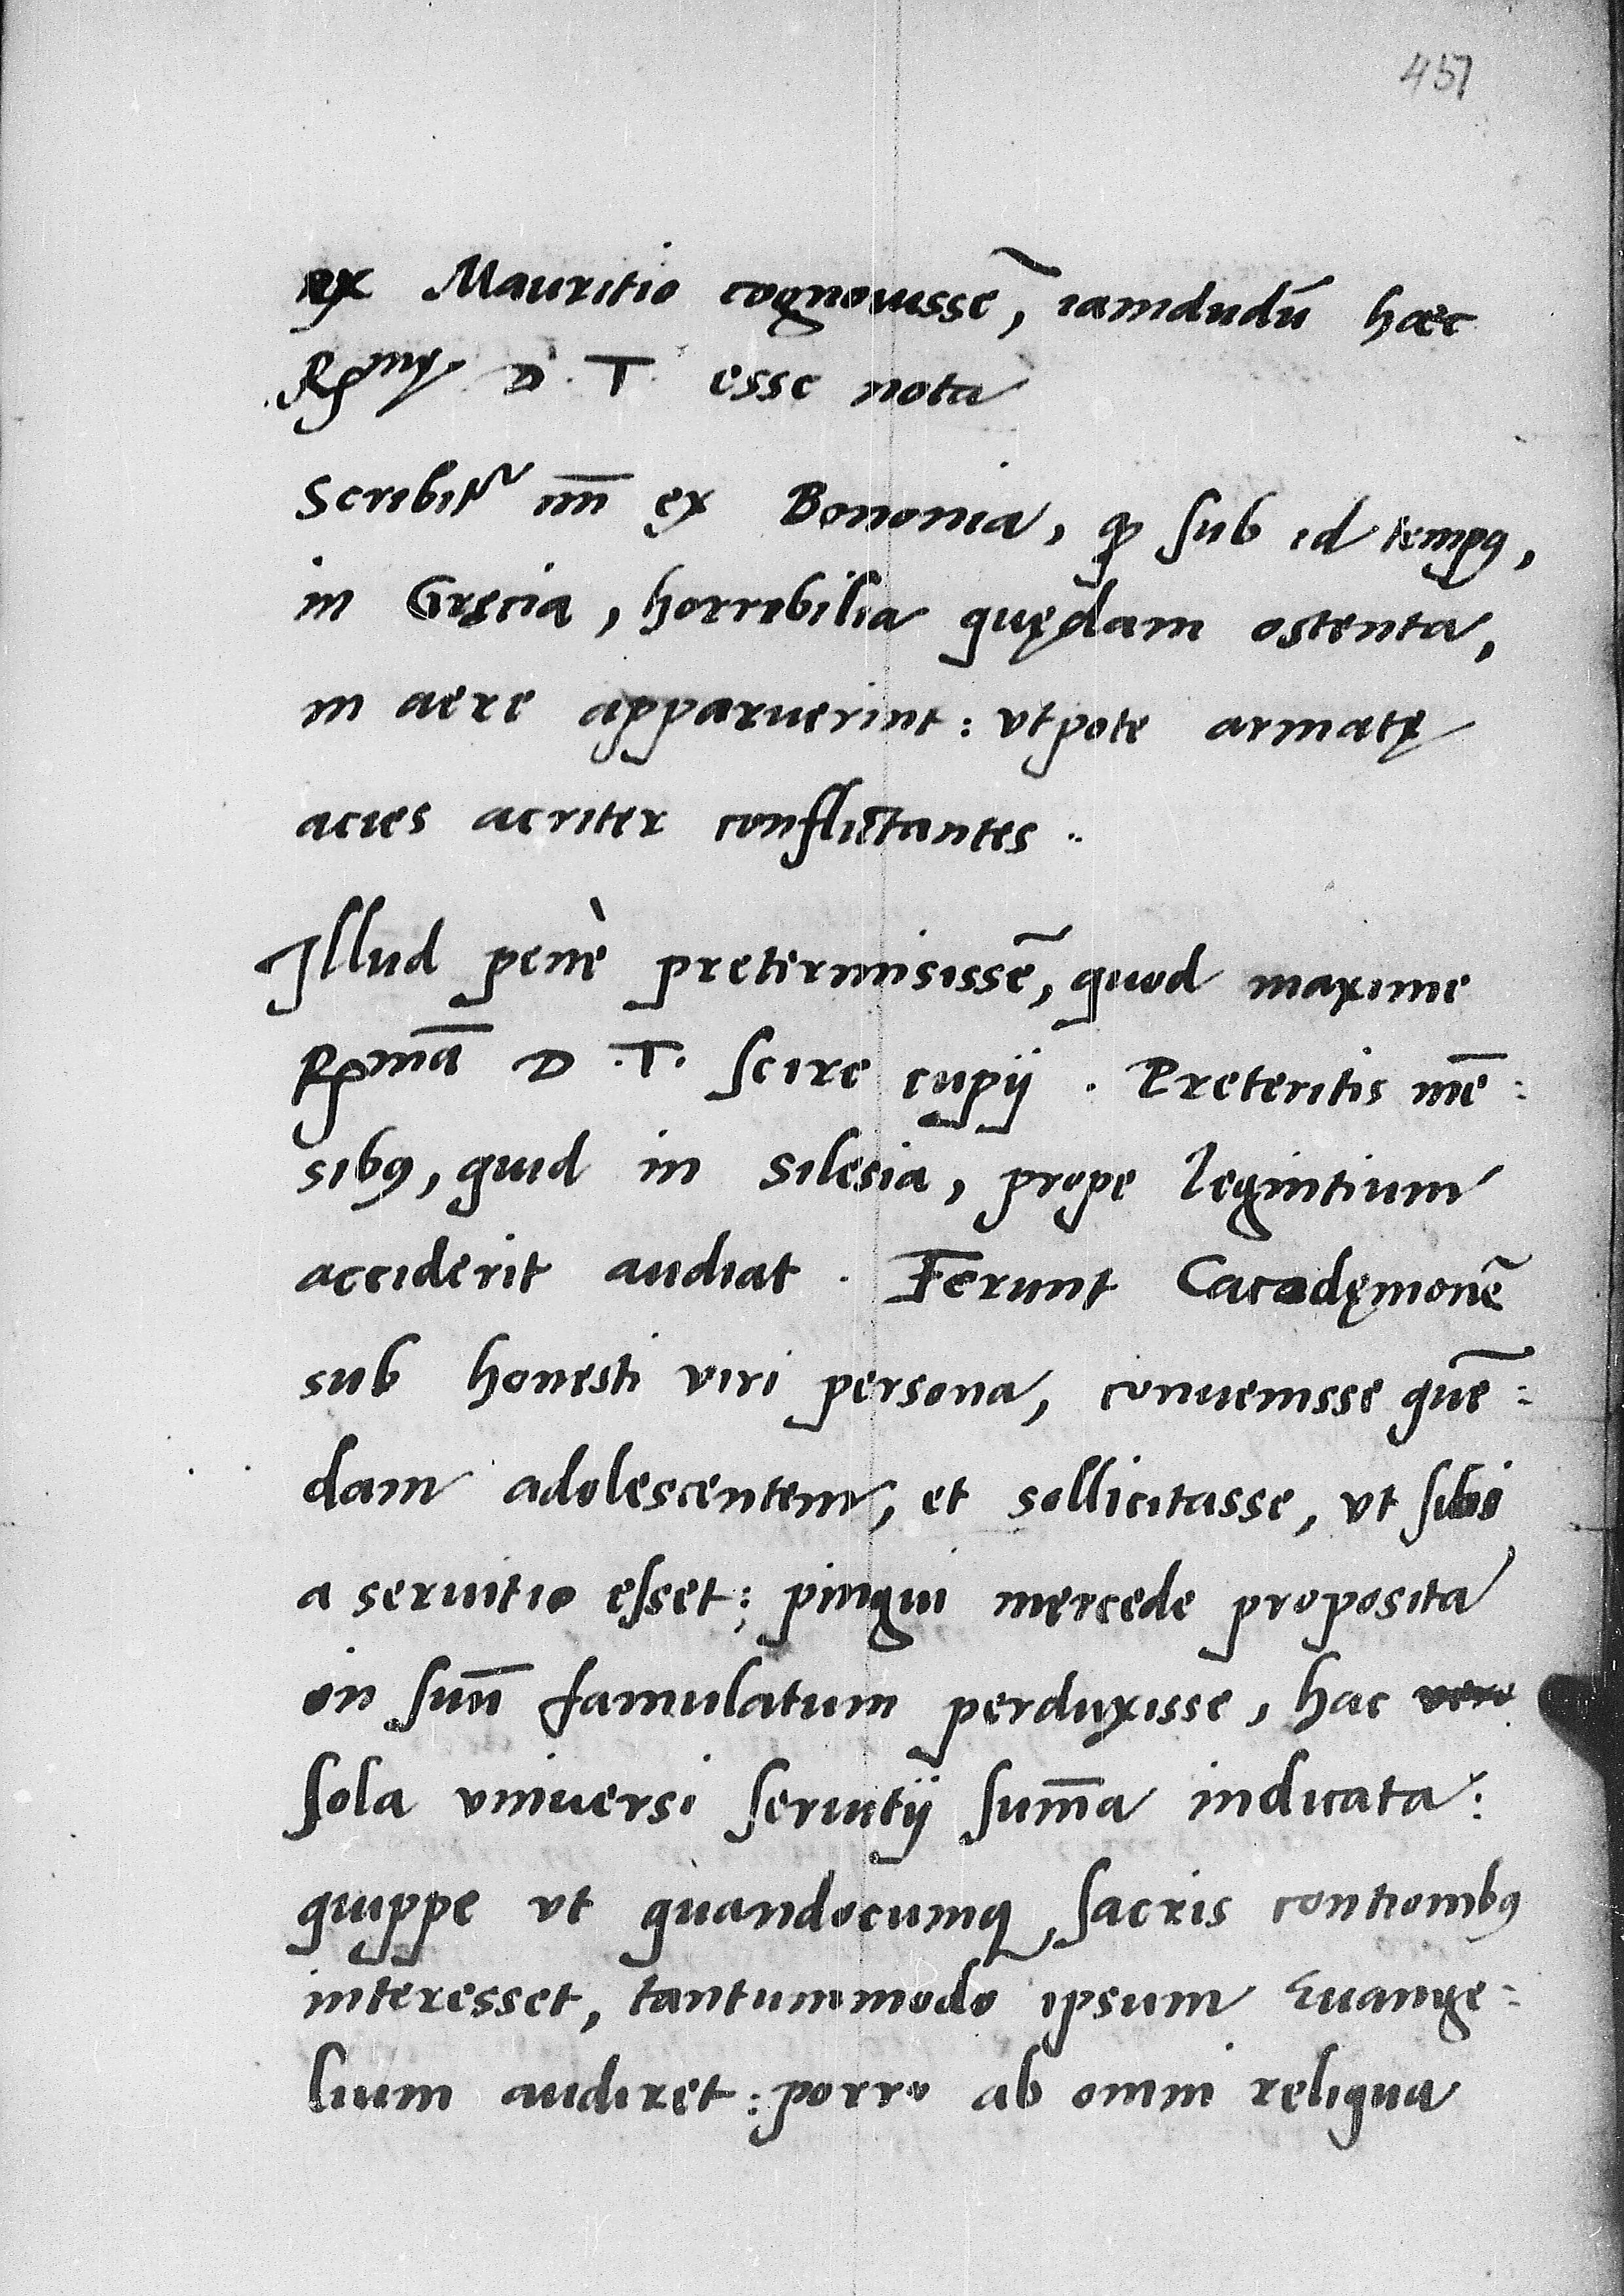 451
ex Mauritio cognouissẽ, iamdudũ haec
R.mę D. T. esse nota
Scribitᷣ im̅ ex Bononia, ꝙ sub id tempꝯ,
in Gręcia, horribilia quędam ostenta,
in aere apparuerint: vtpote armatę
acies acriter conflictantes.
Illud penè pretermisissẽ, quod maxime
R.mã D. T. scire cupij. Preteritis mẽ:
sibꝯ, quid in Silesia, prope legnitium
acciderit audiat. Ferunt Cacodęmonẽ
sub honesti viri persona, conuenisse quẽ:
dam adolescentem, et sollicitasse, vt sibi
a seruitio esset; pingui mercede proposita
in suũ famulatum perduxisse, hac vero
sola vniuersi seruitij sum̅a indicata:
quippe vt quandocumq, sacris contionibꝯ
interesset, tantummodo ipsum Euange:
lium audiret: porro ab omni reliqua